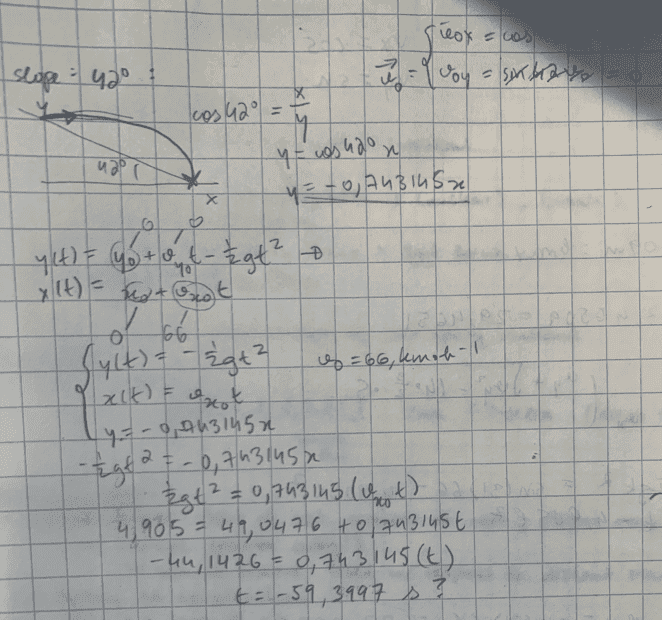 slope = 42° :
v⃗₀ = { v₀x = cos
v₀y = = 0
y
42°
x
cos42° = x/y
y = cos42° x
y = -0,743145x
0 0
y(t) = y₀ + v_y₀t - ½gt² →
x(t) = x₀ + v_x₀t
0 66
{ y(t) = -½gt²
v₀ = 66, km·h⁻¹
x(t) = v_x₀t
y = -0,743145x
-½gt² = -0,743145x
½gt² = 0,743145(v_x₀t)
4,905 = 49,0476 + 0,743145t
-44,1426 = 0,743145(t)
t = -59,3997 s ?